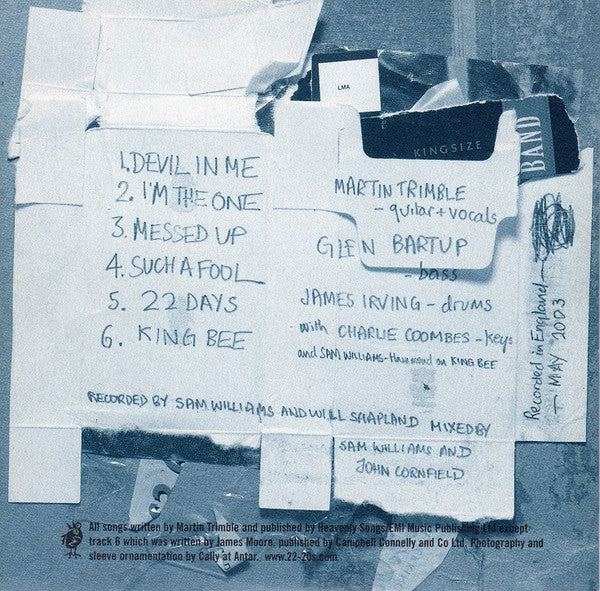 LMA
KINGSIZE
BAND
1. DEVIL IN ME
2. I'M THE ONE
3. MESSED UP
4. SUCH A FOOL
5. 22 DAYS
6. KING BEE
MARTIN TRIMBLE
- guitar + vocals
GLEN BARTUP
- bass
JAMES IRVING - drums
with CHARLIE COOMBES - keys
and SAM WILLIAMS - Hammond on KING BEE
Recorded in England -
- MAY 2003
RECORDED BY SAM WILLIAMS AND WILL SHAPLAND MIXED BY
SAM WILLIAMS AND
JOHN CORNFIELD
All songs written by Martin Trimble and published by Heavenly Songs/EMI Music Publishing Ltd except
track 6 which was written by James Moore, published by Campbell Connelly and Co Ltd. Photography and
sleeve ornamentation by Cally at Antar. www.22-20s.com